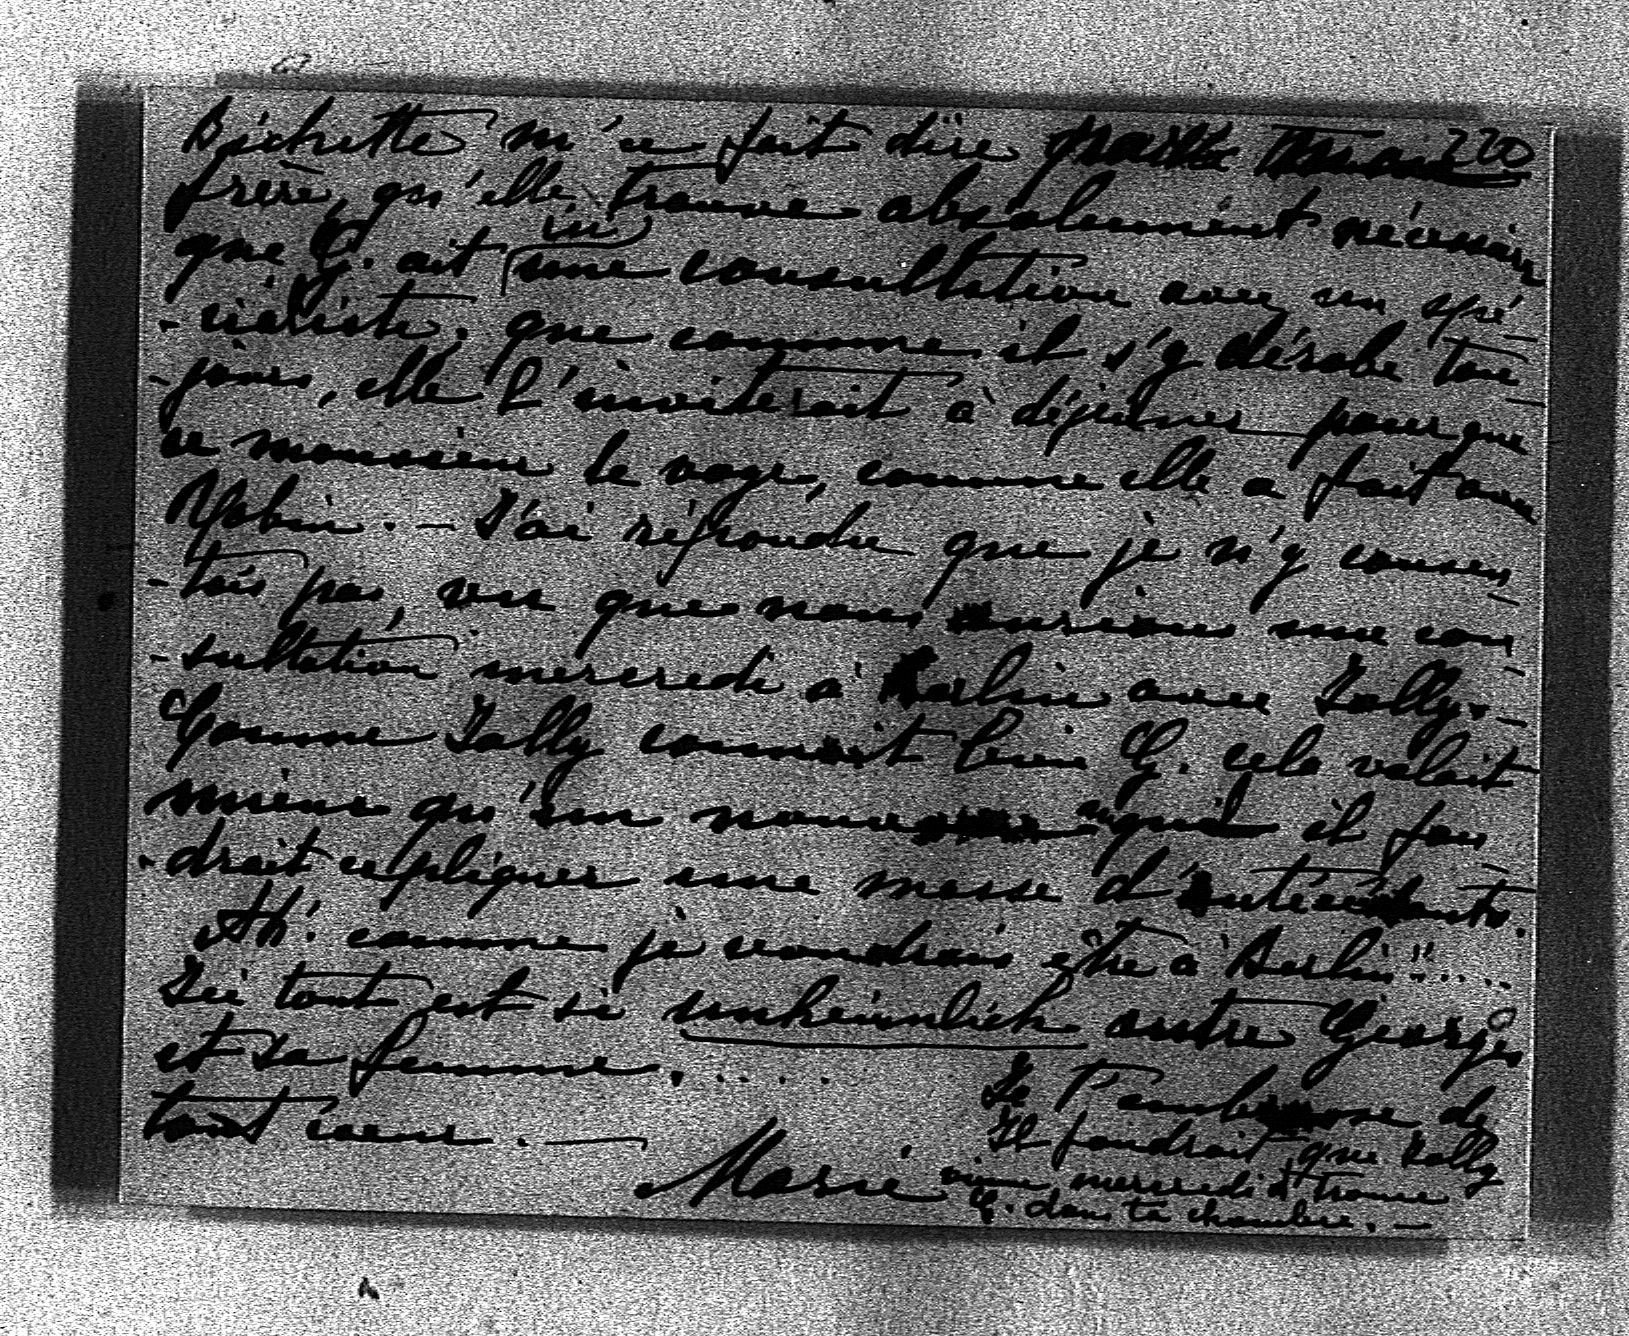 Bichette m'a fait dire 220
frère, qu'elle trouve absolument nécessaire
ici
que G. ait une consultation avec un spé-
-cialiste, que comme il s'y dérobe tou-
-jours, elle l'inviterait à déjeuner pour que
ce monsieur le voye, comme elle a fait avec
Robin. – J'ai répondu que je n'y consen-
-tais pas, vu que nous aurions une con-
-sultation mercredi à Berlin avec Jolly. –
Comme Jolly connait bien G. cela valait
mieux qu'un nouveau à qui il fau-
-drait expliquer une masse d'antécédents.
Ah! comme je voudrais être à Berlin!!....
Ici tout est si unheimlich entre Georges
et sa femme.....
Je t'embrasse de
tout coeur. —
Marie
Il faudrait que Jolly
vienne mercredi et trouve
G. dans ta chambre. —